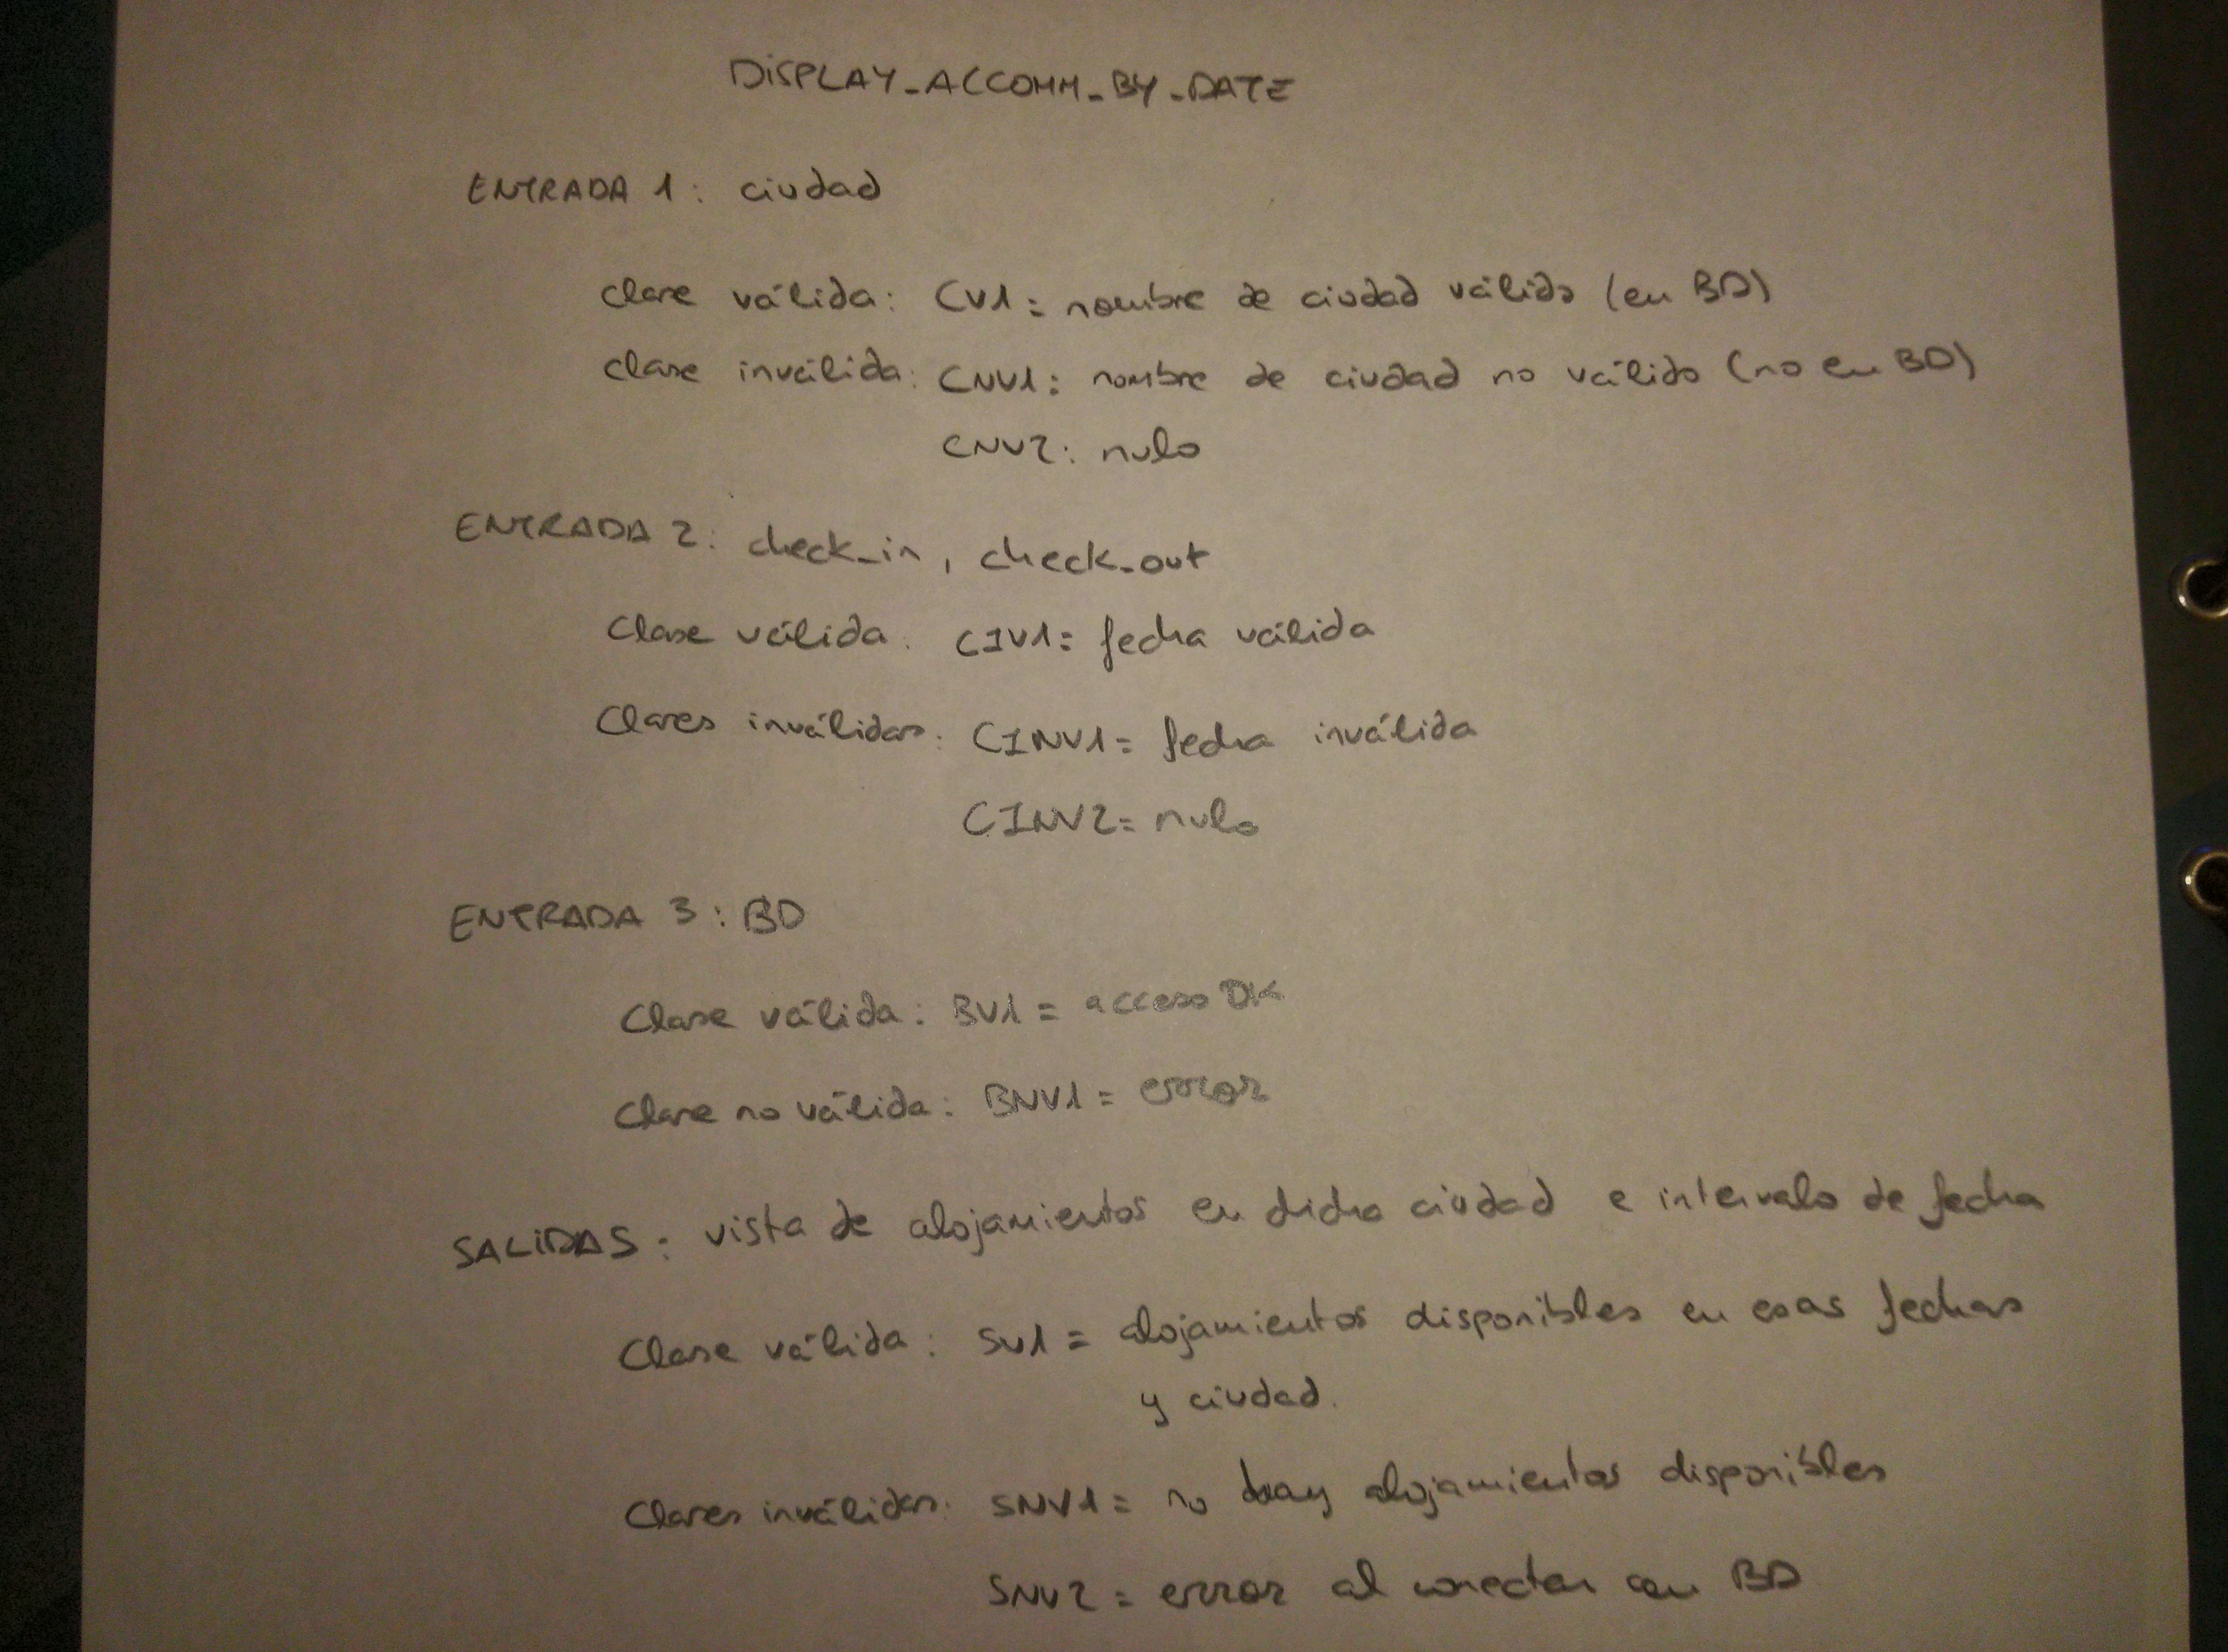 DISPLAY_ACCOMM_BY_DATE
ENTRADA 1: ciudad
clase válida: CV1 = nombre de ciudad válido (en BD)
clase inválida: CNV1: nombre de ciudad no válido (no en BD)
CNV2: nulo
ENTRADA 2: check_in, check_out
Clase válida: CIV1 = fecha válida
Clases inválidas: CINV1 = fecha inválida
CINV2 = nulo
ENTRADA 3: BD
Clase válida: BV1 = acceso OK
Clase no válida: BNV1 = error
SALIDAS: vista de alojamientos en dicha ciudad e intervalo de fecha
Clase válida: SV1 = alojamientos disponibles en esas fechas
y ciudad.
Clases inválidas: SNV1 = no hay alojamientos disponibles
SNV2 = error al conectar con BD